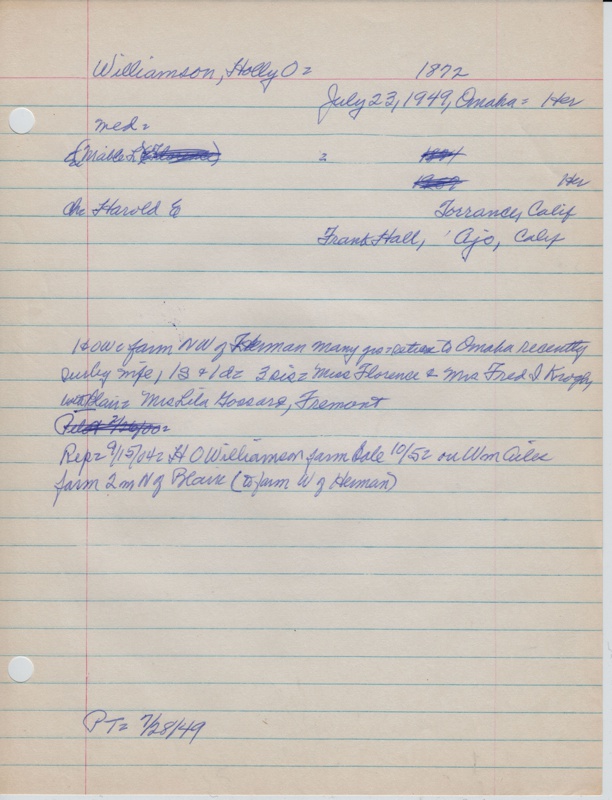 Williamson, Holly O = 1872
July 23, 1949, Omaha = Her
med =
Mable L =
Her
Ch Harold E Torrance, Calif
Frank Hall, Ajo, Calif
farm NW of Herman many yrs = to Omaha recently
surby wife, 1S & 1d = 3 sis = Miss Florence & Mrs Fred I Krogh,
Blair = Mrs Lila Gossard, Fremont
Pilot 2/26/00 =
Rep = 9/15/04 = H O Williamson farm Sale 10/5 = on Wm
farm 2 m N of Blair (to farm W of Herman)
PT = 7/28/49